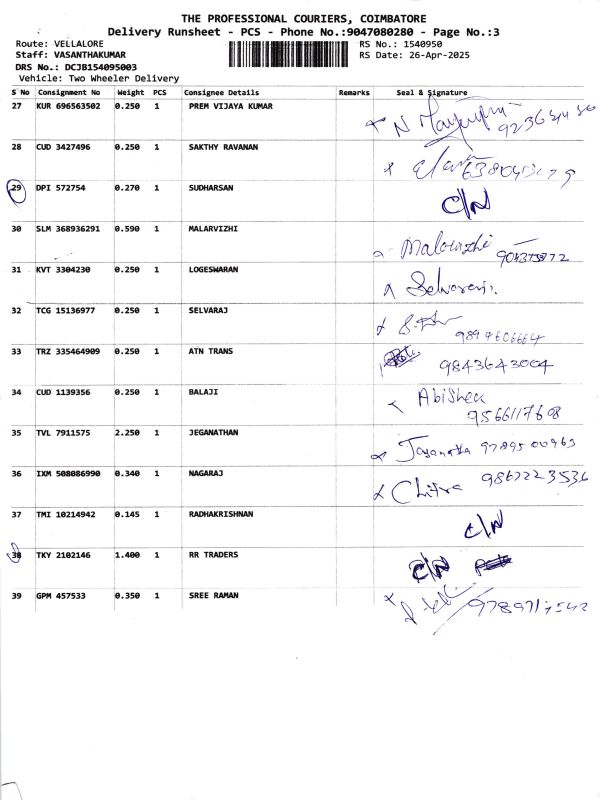 THE PROFESSIONAL COURIERS, COIMBATORE
Delivery Runsheet - PCS - Phone No.:9047080280 - Page No.:3
Route: VELLALORE RS No.: 1540950
Staff: VASANTHAKUMAR RS Date: 26-Apr-2025
DRS No.: DCJB154095003
Vehicle: Two Wheeler Delivery
S No Consignment No Weight PCS Consignee Details Remarks Seal & Signature
27 KUR 696563502 0.250 1 PREM VIJAYA KUMAR
28 CUD 3427496 0.250 1 SAKTHY RAVANAN
29 DPI 572754 0.270 1 SUDHARSAN C/N
30 SLM 368936291 0.590 1 MALARVIZHI Malarvizhi
31 KVT 3304230 0.250 1 LOGESWARAN Selvaraj
32 TCG 15136977 0.250 1 SELVARAJ 9894606664
33 TRZ 335464909 0.250 1 ATN TRANS 9843643004
34 CUD 1139356 0.250 1 BALAJI Abishek
9566117608
35 TVL 7911575 2.250 1 JEGANATHAN 9789500963
36 IXM 508086990 0.340 1 NAGARAJ Chitra 9867223536
37 TMI 10214942 0.145 1 RADHAKRISHNAN C/N
38 TKY 2102146 1.400 1 RR TRADERS C/N
39 GPM 457533 0.350 1 SREE RAMAN